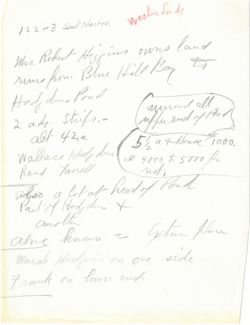 122-3 Seal Harbor.
Mrs. Robert Higgins owns land
runs from Blue Hill Bay to
Hodgdons Pond
2 adj Strips.-
abt 42a
surround all
upper end of Pond
5½ a + House $1000.
at 4000 to 5000 for
Wallace Hodgdon
also a lot at head of Pond
Part of Hodgdon &
another
above known as place
Hodgdon on one side
Frank on lower end